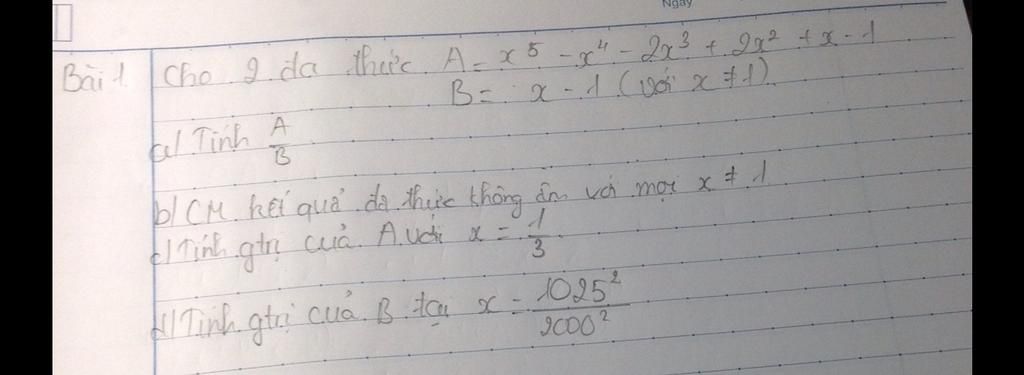 Ngày
Bài 1 Cho 2 đa thức A = x⁵ - x⁴ - 2x³ + 2x² + x - 1
B = x - 1 (với x ≠ 1)
a/ Tính A/B
b/ CM kết quả đa thức không âm với mọi x ≠ 1
c/ Tính gtrị của A với x = 1/3
d/ Tính gtrị của B tại x = 1025²/2000²